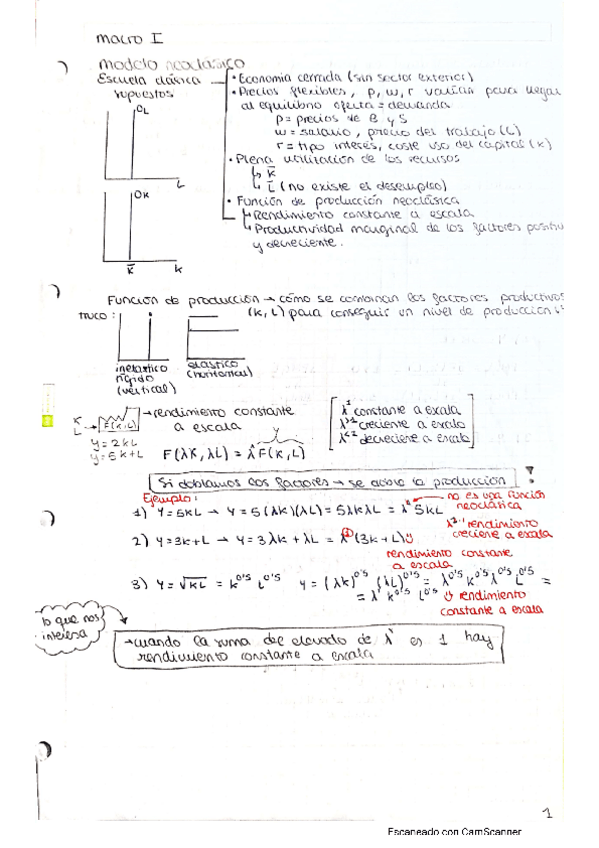 Macro I
Modelo neoclásico
Escuela clásica
supuestos
• Economía cerrada (sin sector exterior)
• Precios flexibles, p, w, r varían para llegar
al equilibrio oferta = demanda
p = precios de B y S
w = salario, precio del trabajo (L)
r = tipo interés, coste uso del capital (K)
• Plena utilización de los recursos
↳ K̄
↳ L̄ (no existe el desempleo)
• Función de producción neoclásica
↳ Rendimiento constante a escala
↳ Productividad marginal de los factores positiv
y decreciente.
OL
L
OK
K̄ K
Función de producción → cómo se combinan los factores productivos
(K, L) para conseguir un nivel de producción
TRUCO:
inelástico
rígido
(vertical)
elástico
(horizontal)
K
L → F(K,L) → rendimiento constante
a escala
y = 2KL
y = 5K+L
F(λK, λL) = λ¹F(K,L)
y
λ¹ constante a escala
λ>1 creciente a escala
λ<1 decreciente a escala
Si doblamos los factores → se dobla la producción !
Ejemplo:
1) Y = 5KL → Y = 5(λK)(λL) = 5λKλL = λ²5KL
no es una función
neoclásica
λ²⁻¹ rendimiento
creciente a escala
2) Y = 3K+L → Y = 3λK + λL = λ¹(3K+L)
rendimiento constante
a escala
3) Y = √KL = K^0'5 L^0'5 Y = (λK)^0'5 (λL)^0'5 = λ^0'5 K^0'5 λ^0'5 L^0'5 =
= λ¹ K^0'5 L^0'5 rendimiento
constante a escala
lo que nos
interesa
→ cuando la suma del elevado de λ es 1 hay
rendimiento constante a escala
1
Escaneado con CamScanner